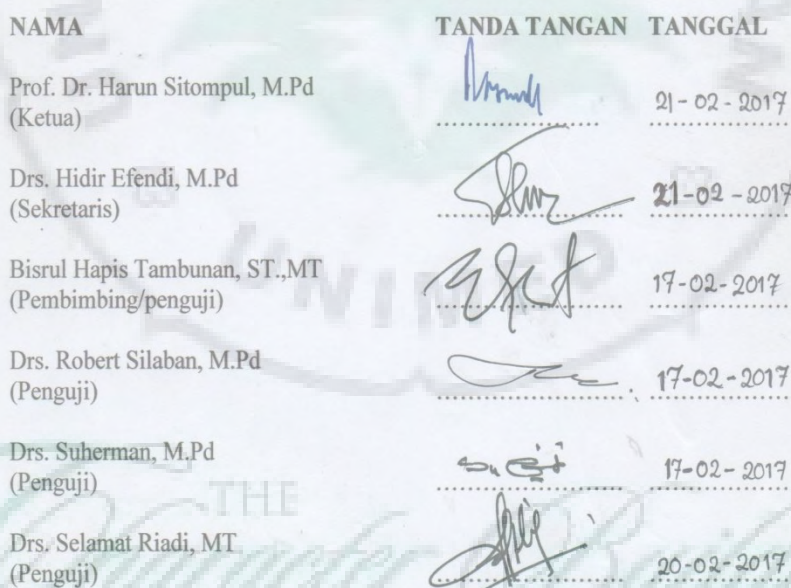 NAMA TANDA TANGAN TANGGAL
Prof. Dr. Harun Sitompul, M.Pd
(Ketua) 21-02-2017
Drs. Hidir Efendi, M.Pd
(Sekretaris) 21-02-2017
Bisrul Hapis Tambunan, ST.,MT
(Pembimbing/penguji) 17-02-2017
Drs. Robert Silaban, M.Pd
(Penguji) 17-02-2017
Drs. Suherman, M.Pd
(Penguji) 17-02-2017
Drs. Selamat Riadi, MT
(Penguji) 20-02-2017
UNIMED
THE
Character